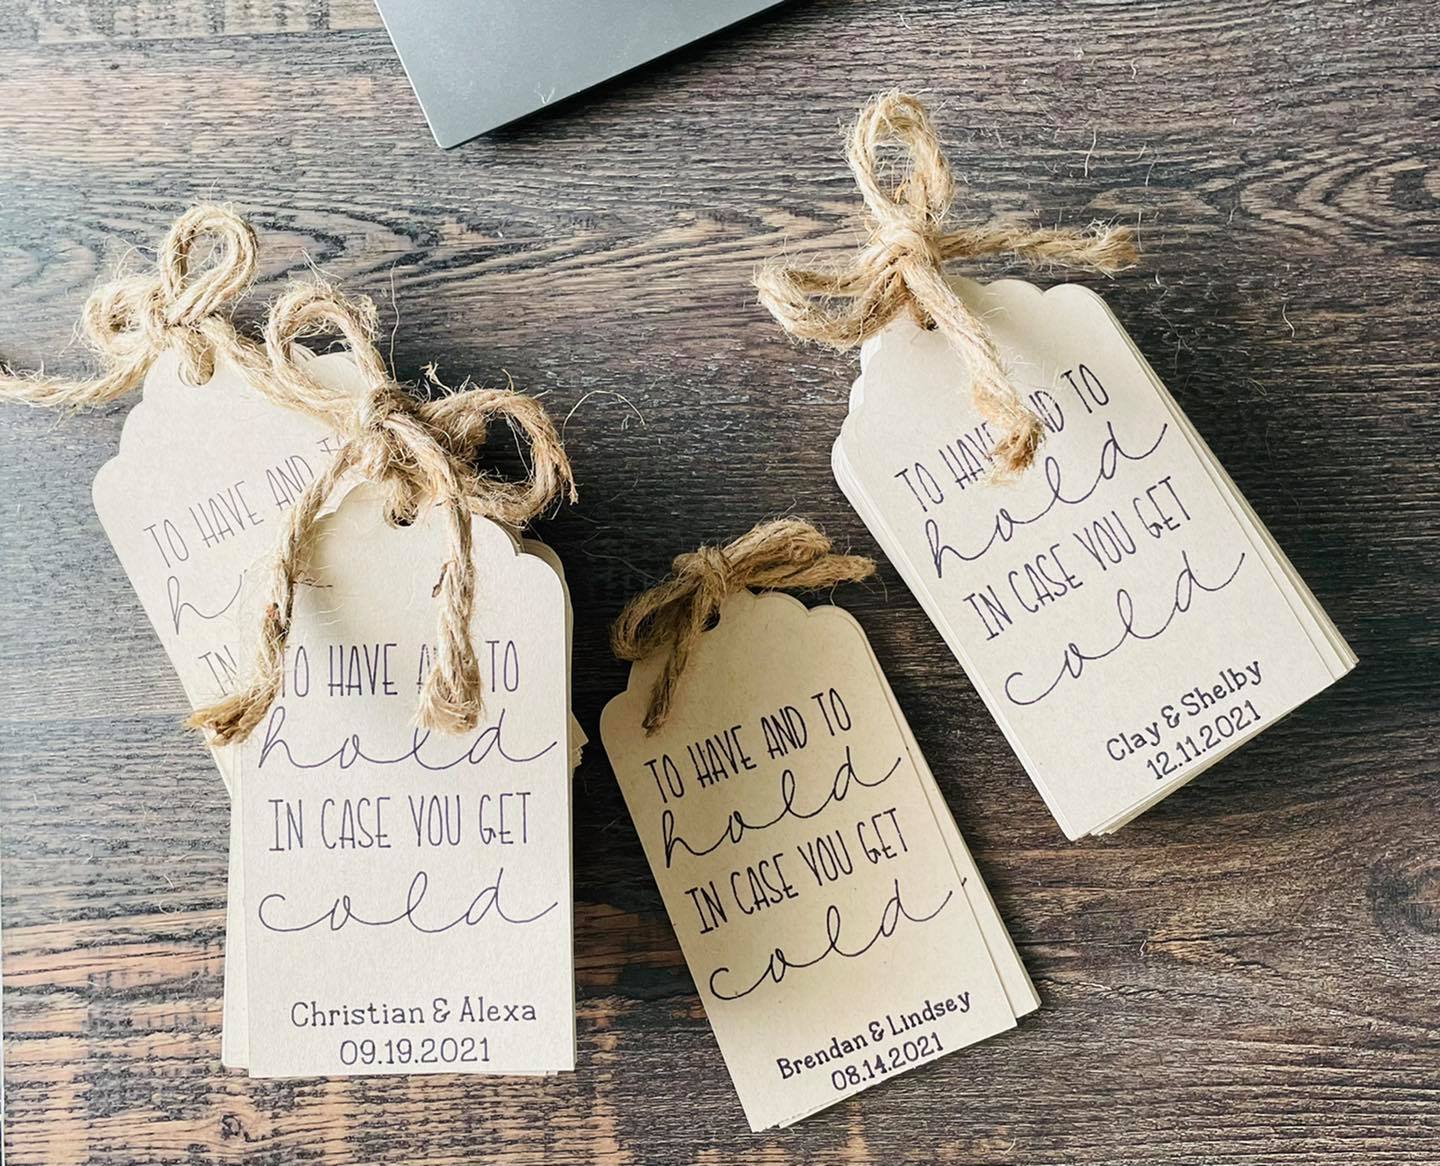 TO HAVE AND
h
IN
TO HAVE A TO
hold
IN CASE YOU GET
cold
Christian & Alexa
09.19.2021
TO HAVE AND TO
hold
IN CASE YOU GET
cold
Brendan & Lindsey
08.14.2021
TO HAVE AND TO
hold
IN CASE YOU GET
cold
Clay & Shelby
12.11.2021